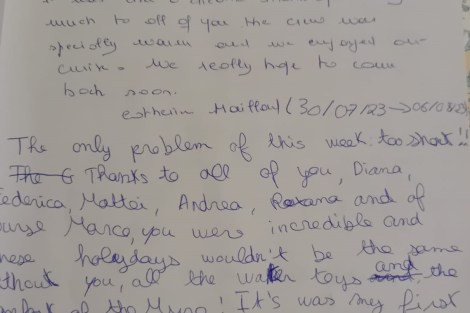 much to all of you the crew was
specially warm and we enjoyed our
. We really hope to come
back soon.
(30/07/23 → 06/08/23
The only problem of this week: too short!!
Thanks to all of you, Diana,
ederica, Mattei, Andrea, Roxana and of
ourse Marco, you were incredible and
hese holydays wouldn't be the same
thout you, all the water toys and the
of the ! It's was my first